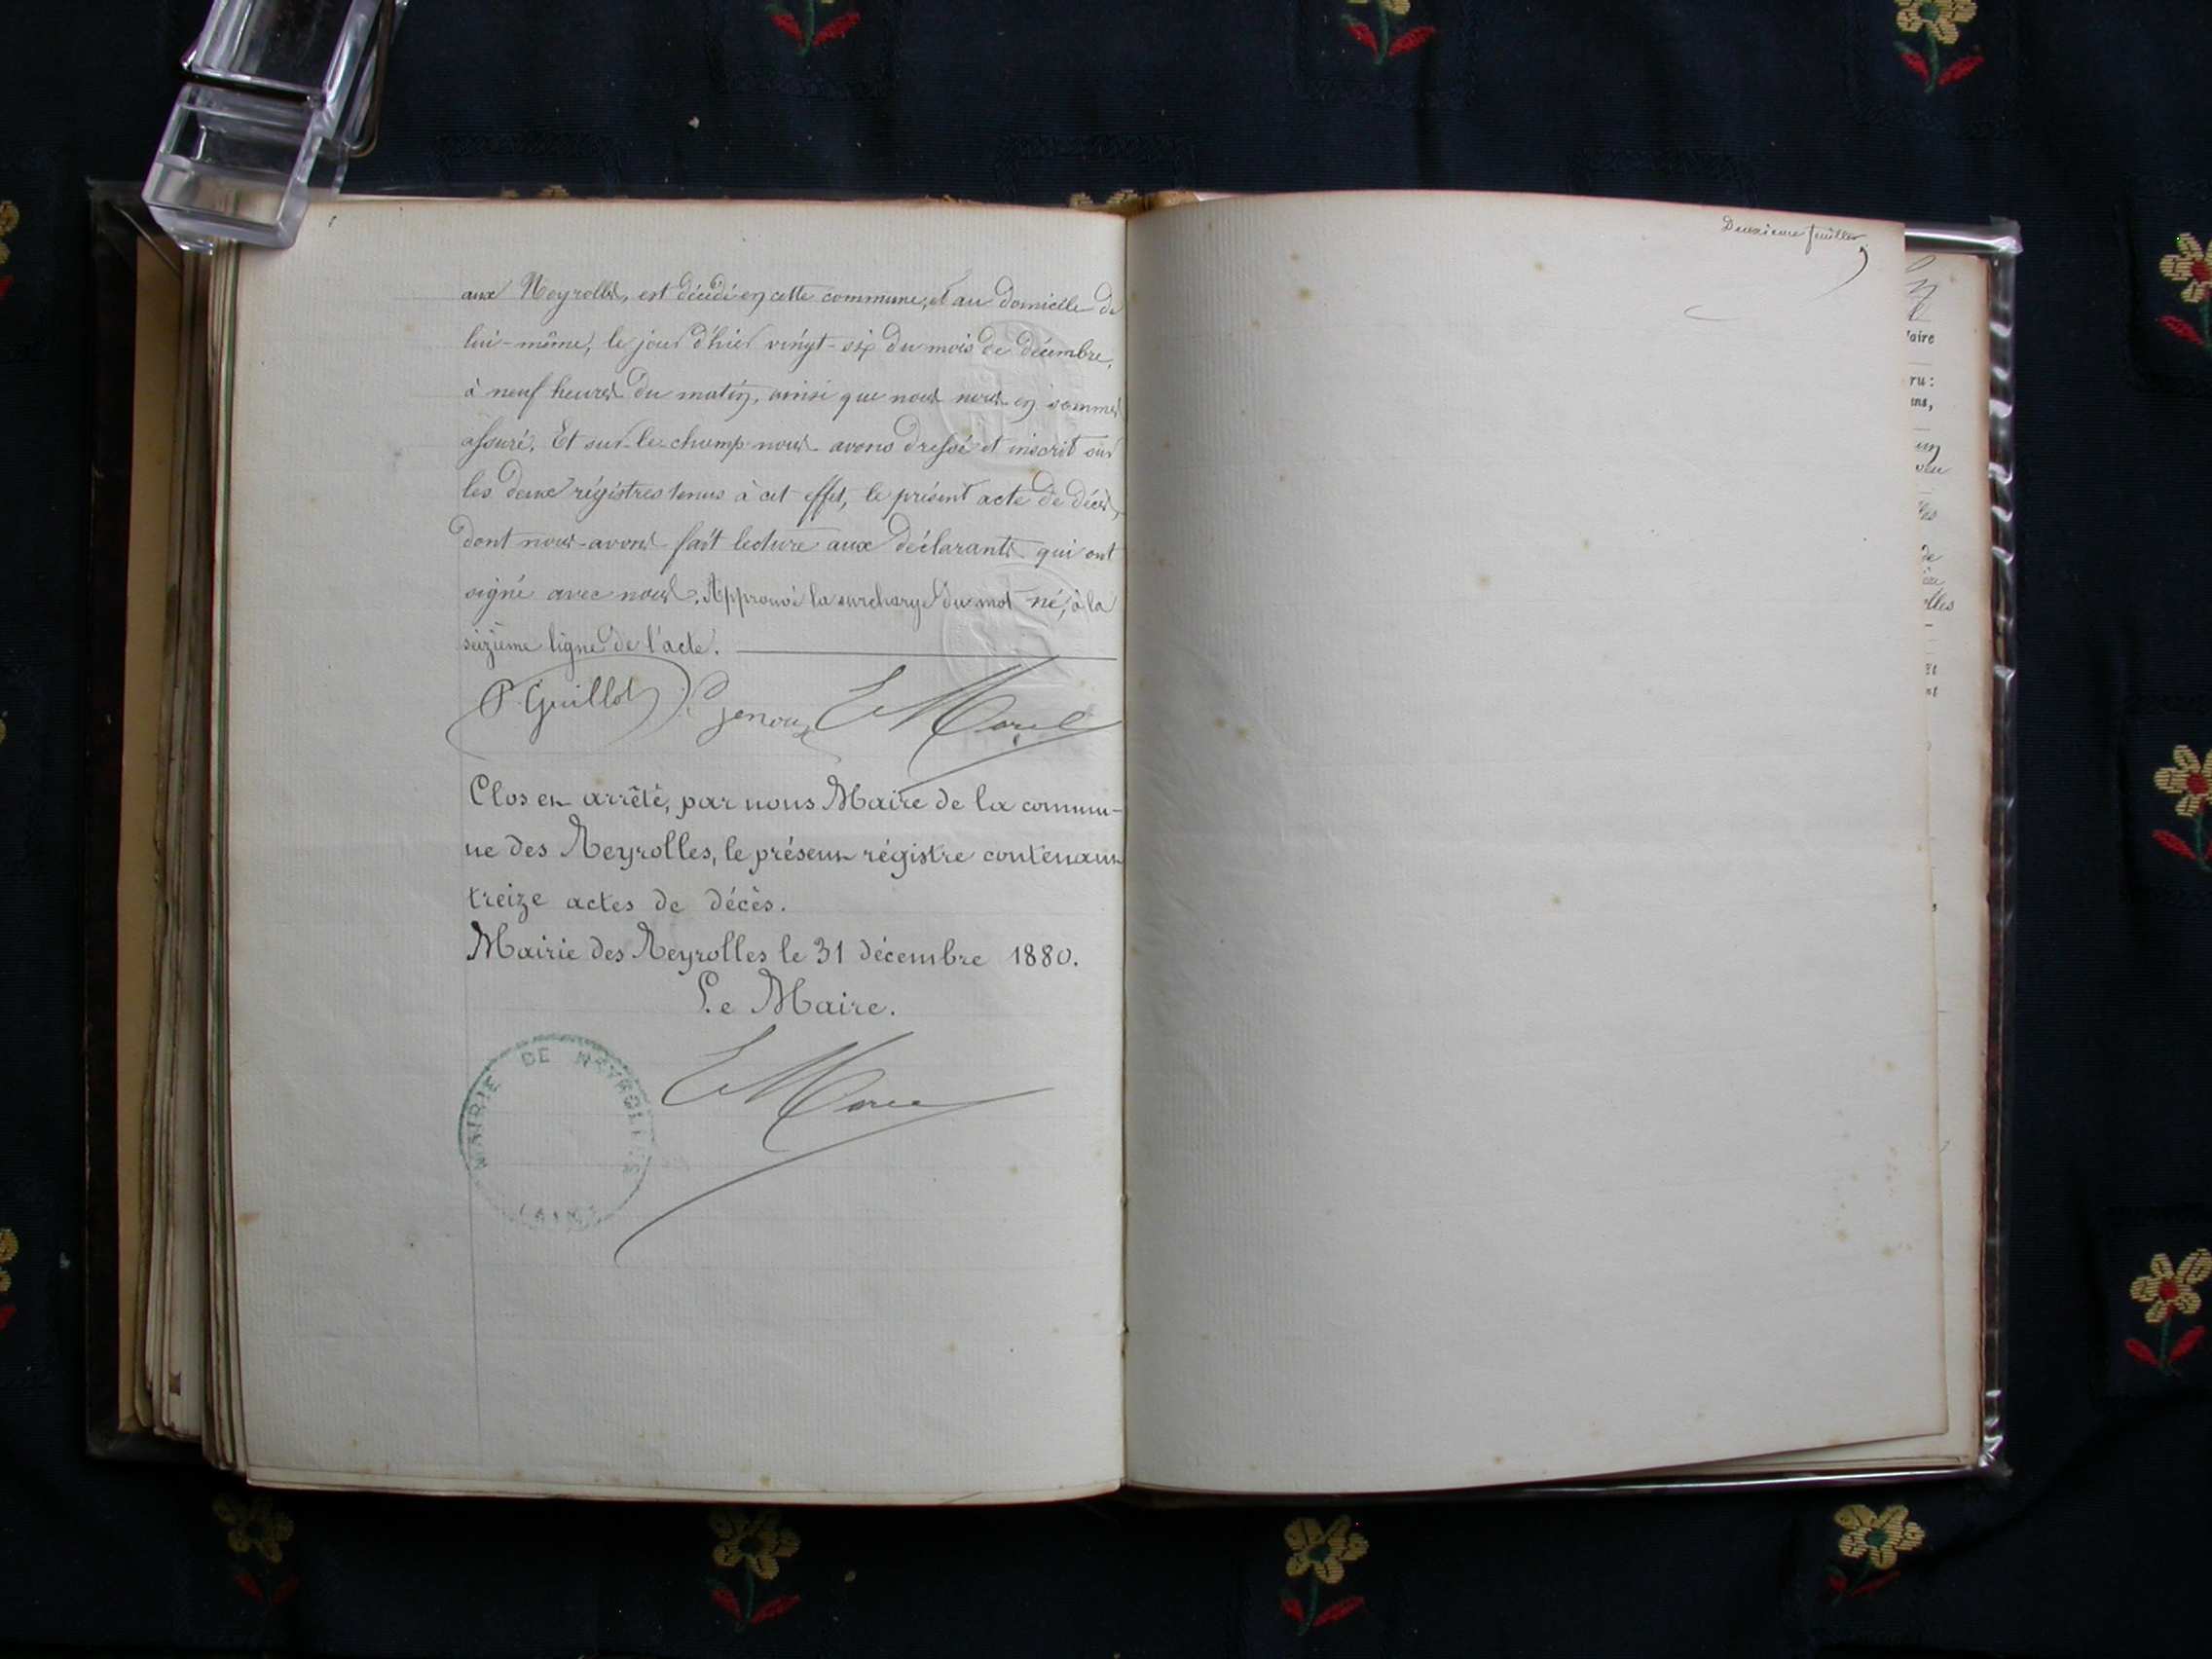 aux Neyrolles, est décédé en cette commune, et au domicile de
lui-même, le jour d'hier vingt-six du mois de décembre,
à neuf heures du matin, ainsi que nous nous en sommes
assuré. Et sur-le-champ nous avons dressé et inscrit sur
les deux régistres tenus à cet effet, le présent acte de décès,
dont nous avons fait lecture aux déclarants qui ont
signé avec nous. Approuvé la surcharge du mot né, à la
seizième ligne de l'acte.
P. Guillot Genoux E Morel
Clos et arrêté, par nous Maire de la commu-
ne des Neyrolles, le présent régistre contenant
treize actes de décès.
Mairie des Neyrolles le 31 décembre 1880.
Le Maire.
E Morel
MAIRIE DE NEYROLLES
(AIN)
Deuxième feuillet
aire
ru:
ins,
un
de
lles
et